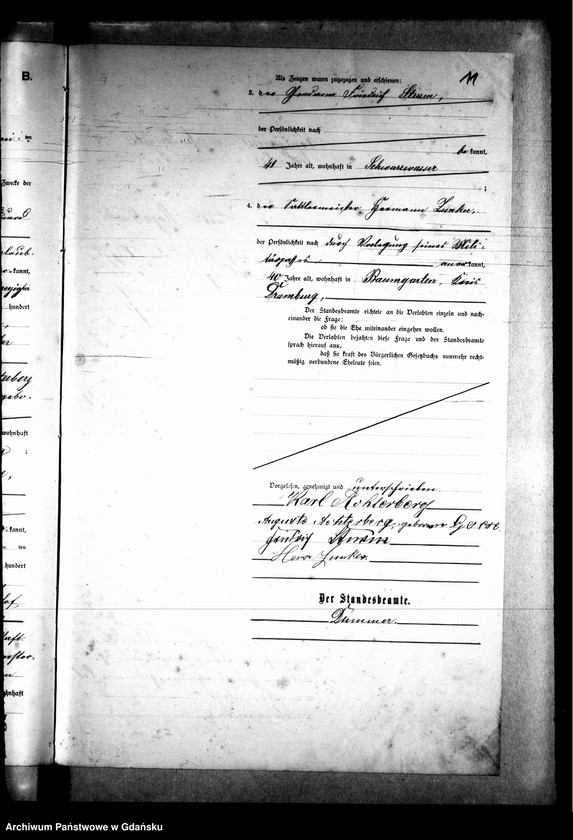 B.
11
Als Zeugen waren zugezogen und erschienen:
3. der Gendarm Friedrich Sturm,
der Persönlichkeit nach
be kannt,
41 Jahre alt, wohnhaft in Schwarzwasser
;
4. der Sattlermeister Hermann Zunker,
der Persönlichkeit nach durch Vorlegung seines Mili-
tärpasses anerkannt,
40 Jahre alt, wohnhaft in Baumgarten, Kreis
Dramburg,
Der Standesbeamte richtete an die Verlobten einzeln und nach-
einander die Frage:
ob sie die Ehe miteinander eingehen wollen.
Die Verlobten bejahten diese Frage und der Standesbeamte
sprach hierauf aus,
daß sie kraft des Bürgerlichen Gesetzbuchs nunmehr recht-
mäßig verbundene Eheleute seien.
Vorgelesen, genehmigt und unterschrieben
Karl Achterberg
Auguste Achterberg, geborene
Friedrich Sturm
Herm. Zunker.
Der Standesbeamte.
Dummer.
Archiwum Państwowe w Gdańsku